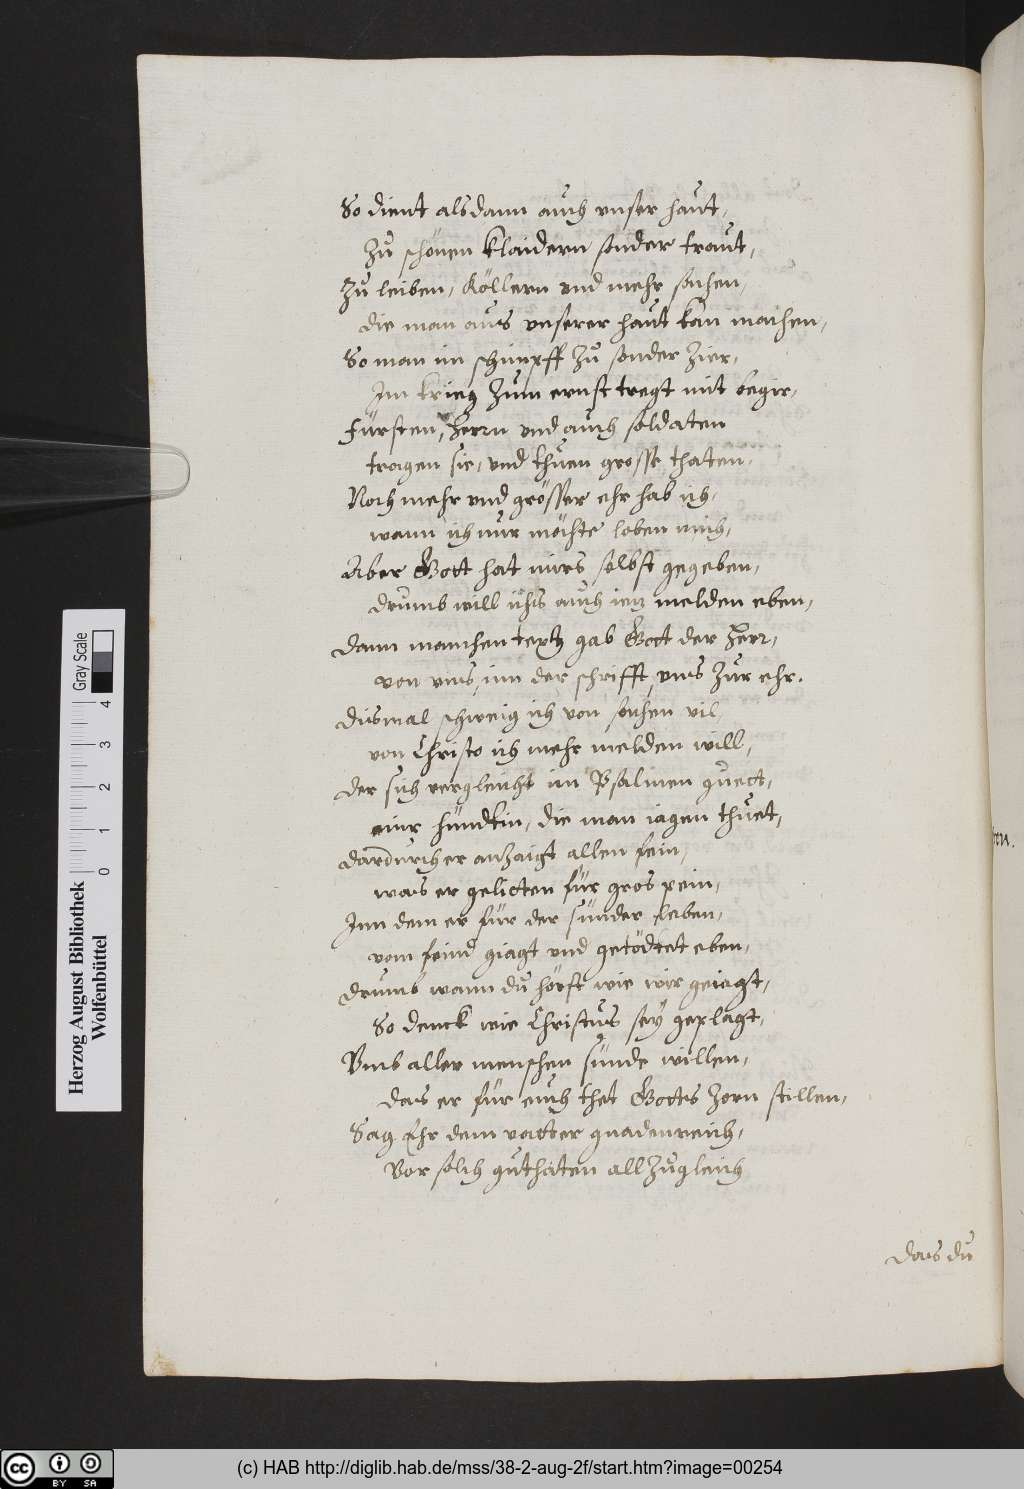 So dient alsdann auch vnser haut,
Zů schönen klaidern sonder traut,
Zů leiben, köllern vnd mehr sachen,
die man aus vnserer haut kan machen,
So man im schimpff zů sonder zier,
Im krieg zum ernst tregt mit begir,
Fürsten, Herrn vnd auch soldaten
tragen sie, vnd thuen grosse thaten,
Noch mehr vnd grösser ehr hab ich,
wann ich nur möchte loben mich,
Aber Gott hat mirs selbst gegeben,
drumb will ichs auch ietz melden eben,
dann manchen text gab Gott der Herr,
von vns, inn der schrifft, vns zur ehr.
dismal schweig ich von sachen vil,
von Christo ich mehr melden will,
der sich vergleicht im Psalmen guett,
einr hündtin, die man iagen thuet,
dardurch er anzaigt allen fein,
was er gelitten für gros pein,
Inn dem er für der sünder leben,
vom feind giagt vnd getödtet eben,
drumb wann du hörst wie wir geiagt,
So denck wie Christus seÿ geplagt,
Vmb aller menschen sünde willen,
das er für euch thet Gottes zorn stillen,
Sag Ehr dem vatter gnadenreich,
Vor solch guthaten all zugleich
das du
en.
Herzog August Bibliothek
Wolfenbüttel
Gray Scale
0 1 2 3 4
cc BY SA
(c) HAB http://diglib.hab.de/mss/38-2-aug-2f/start.htm?image=00254